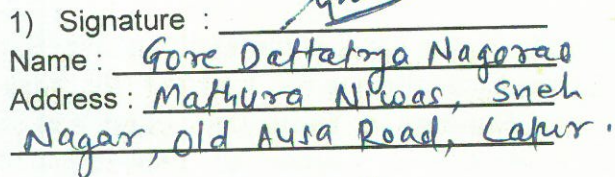 1) Signature :
Name : Gore Dattatrya Nagorao
Address : Mathura Niwas, Sneh
Nagar, Old Ausa Road, Latur.